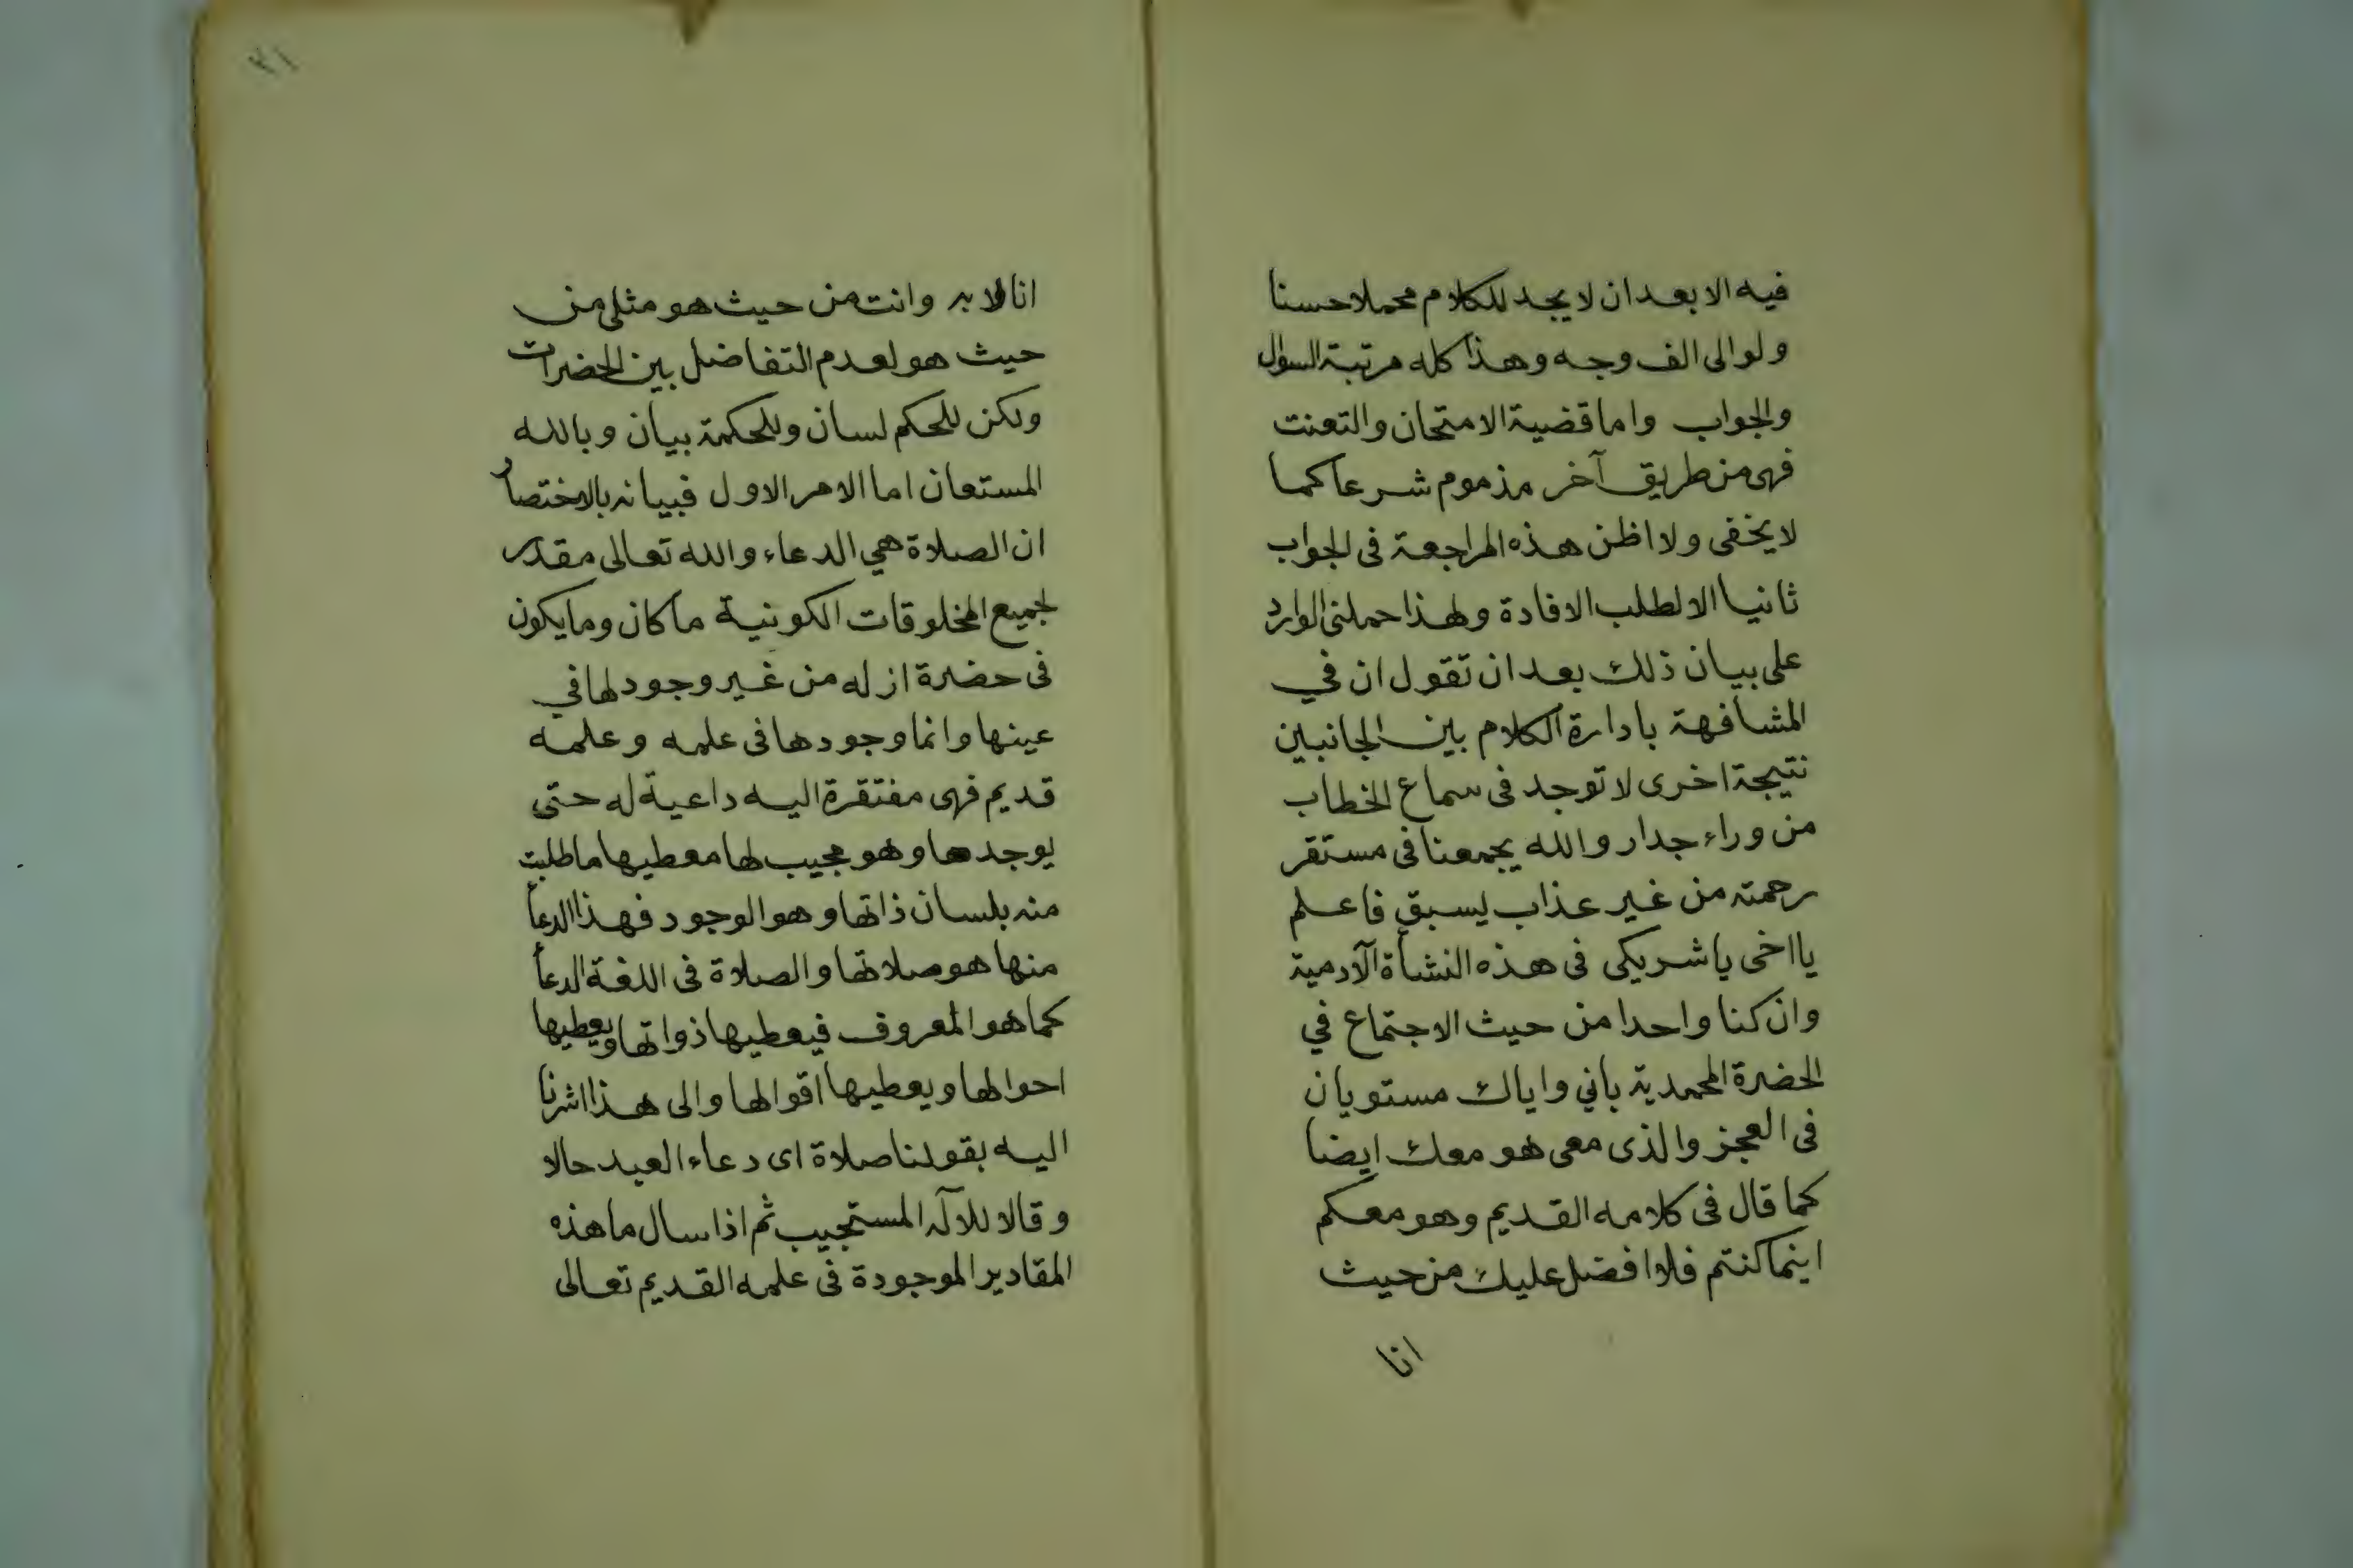 فيه الا بعد ان لا يجد للكلام محملا حسنا
ولو الى الف وجه وهذا كله مرتبة السوال
والجواب واما قضية الامتحان والتعنت
فهى من طريق آخر مذموم شرعا كما
لا يخفى ولا اظن هذه المراجعة فى الجواب
ثانيا الا لطلب الافادة ولهذا حملنى الوارد
على بيان ذلك بعد ان تقول ان في
المشافهة بادارة الكلام بين الجانبين
نتيجة اخرى لا توجد فى سماع الخطاب
من وراء جدار والله يجمعنا فى مستقر
رحمته من غير عذاب يسبق فاعلم
يا اخى يا شريكى فى هذه النشأة الآدمية
وان كنا واحدا من حيث الاجتماع في
الحضرة المحمدية باني واياك مستويان
فى العجز والذى معى هو معك ايضا
كما قال فى كلامه القديم وهو معكم
اينما كنتم فلا افضل عليك من حيث
انا
٣١
انا الا به وانت من حيث هو مثلى من
حيث هو لعدم التفاضل بين الحضرات
ولكن للحكم لسان وللحكمة بيان وبالله
المستعان اما الامر الاول فبيانه بالاختصار
ان الصلاة هي الدعاء والله تعالى مقدر
لجميع المخلوقات الكونية ما كان وما يكون
فى حضرة ازله من غير وجود لها في
عينها وانما وجودها فى علمه وعلمه
قديم فهى مفتقرة اليه داعية له حتى
يوجدها وهو مجيب لها معطيها ما طلبت
منه بلسان ذاتها وهو الوجود فهذا الدعأ
منها هو صلاتها والصلاة فى اللغة الدعأ
كما هو المعروف فيعطيها ذواتها ويعطيها
احوالها ويعطيها اقوالها والى هذا اشرنا
اليه بقولنا صلاة اى دعاء العبد حالا
وقالا للآله المستجيب ثم اذا سال ما هذه
المقادير الموجودة فى علمه القديم تعالى